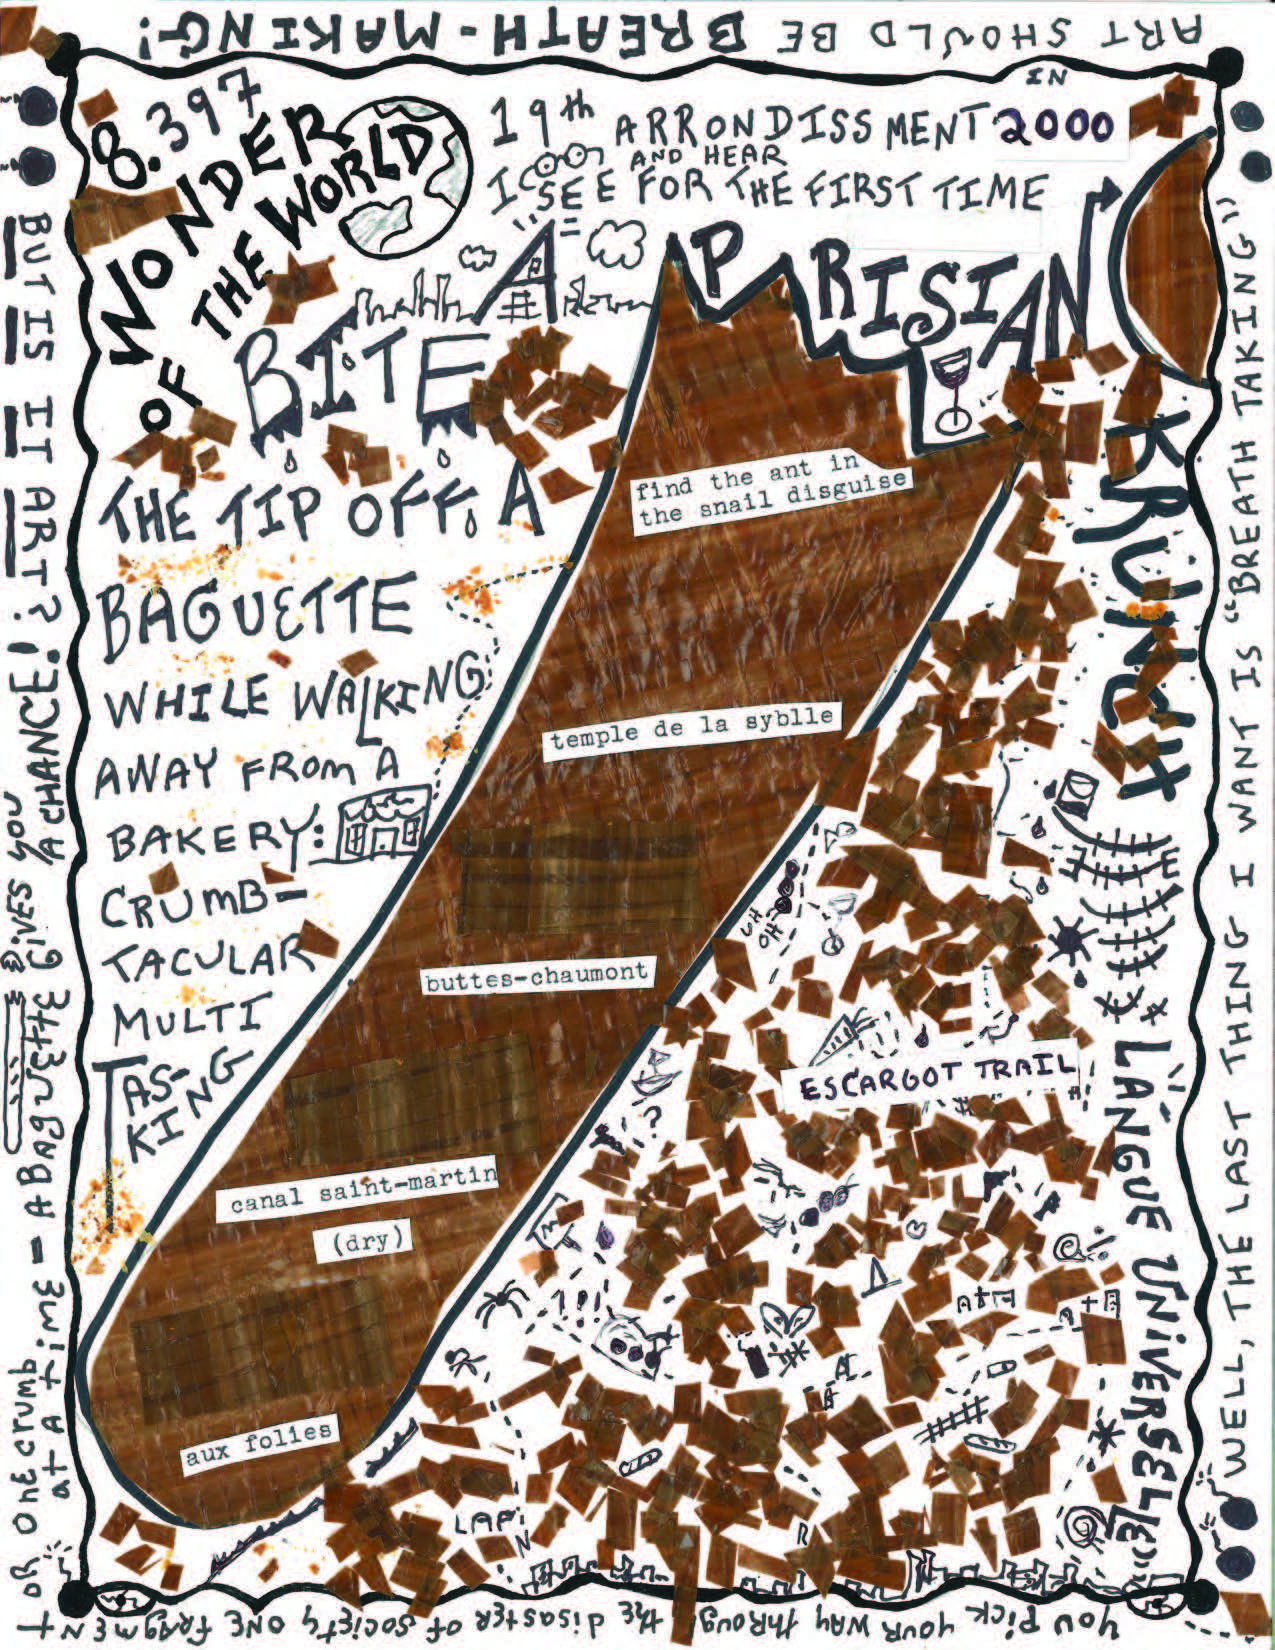 ART SHOULD BE BREATH-MAKING!
8.397
WONDER
OF THE WORLD
IN
19th ARRONDISSMENT 2000
AND HEAR
I SEE FOR THE FIRST TIME
A PARISIAN
BITE
THE TIP OFF A
BAGUETTE
WHILE WALKING
AWAY FROM A
BAKERY:
CRUMB-
TACULAR
MULTI
TAS-
KING
find the ant in
the snail disguise
temple de la syblle
buttes-chaumont
canal saint-martin
(dry)
aux folies
KRUNCH
LANGUE UNIVERSELLE"
UH
OH
ESCARGOT TRAIL
?
LAPIN
WELL, THE LAST THING I WANT IS "BREATH TAKING"
BUT IS IT ART?!
A BAGUETTE GIVES YOU
A CHANCE!
YOU PICK YOUR WAY THROUGH THE DISASTER OF SOCIETY ONE FRAGMENT
OR ONE CRUMB
AT A TIME —